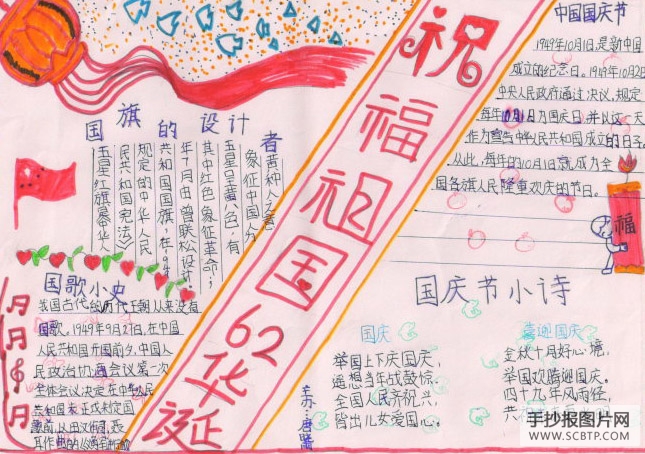 祝福祖国62华诞
中国国庆节
1949年10月1日,是新中国
成立的纪念日。1949年10月2日
中央人民政府通过决议,规定
每年10月1日为国庆日,并以这一天
作为宣告中华人民共和国成立的日子。
从此,每年的10月1日就成为全
国各族人民隆重欢庆的节日。
福
国旗的设计者
五星红旗是中华人
民共和国宪法》
规定的中华人民
共和国国旗,在
年7月由曾联松设计
其中红色象征革命;
五星呈黄色,有
象征中国人为
黄种人之意
国歌小史
我国古代的历代王朝从来没有
国歌。1949年9月27日,在中国
人民共和国开国前夕,中国人
民政治协商会议第一次
全体会议决定在中华人民
共和国未正式制定国
国庆节小诗
国庆
举国上下庆国庆,
遥想当年战鼓惊。
全国人民齐祝兴,
皆出儿女爱国心。
喜迎国庆
金秋十月好心境,
举国欢腾迎国庆。
四十九年风雨经,
共
手抄报图片网
WWW.SCBTP.COM